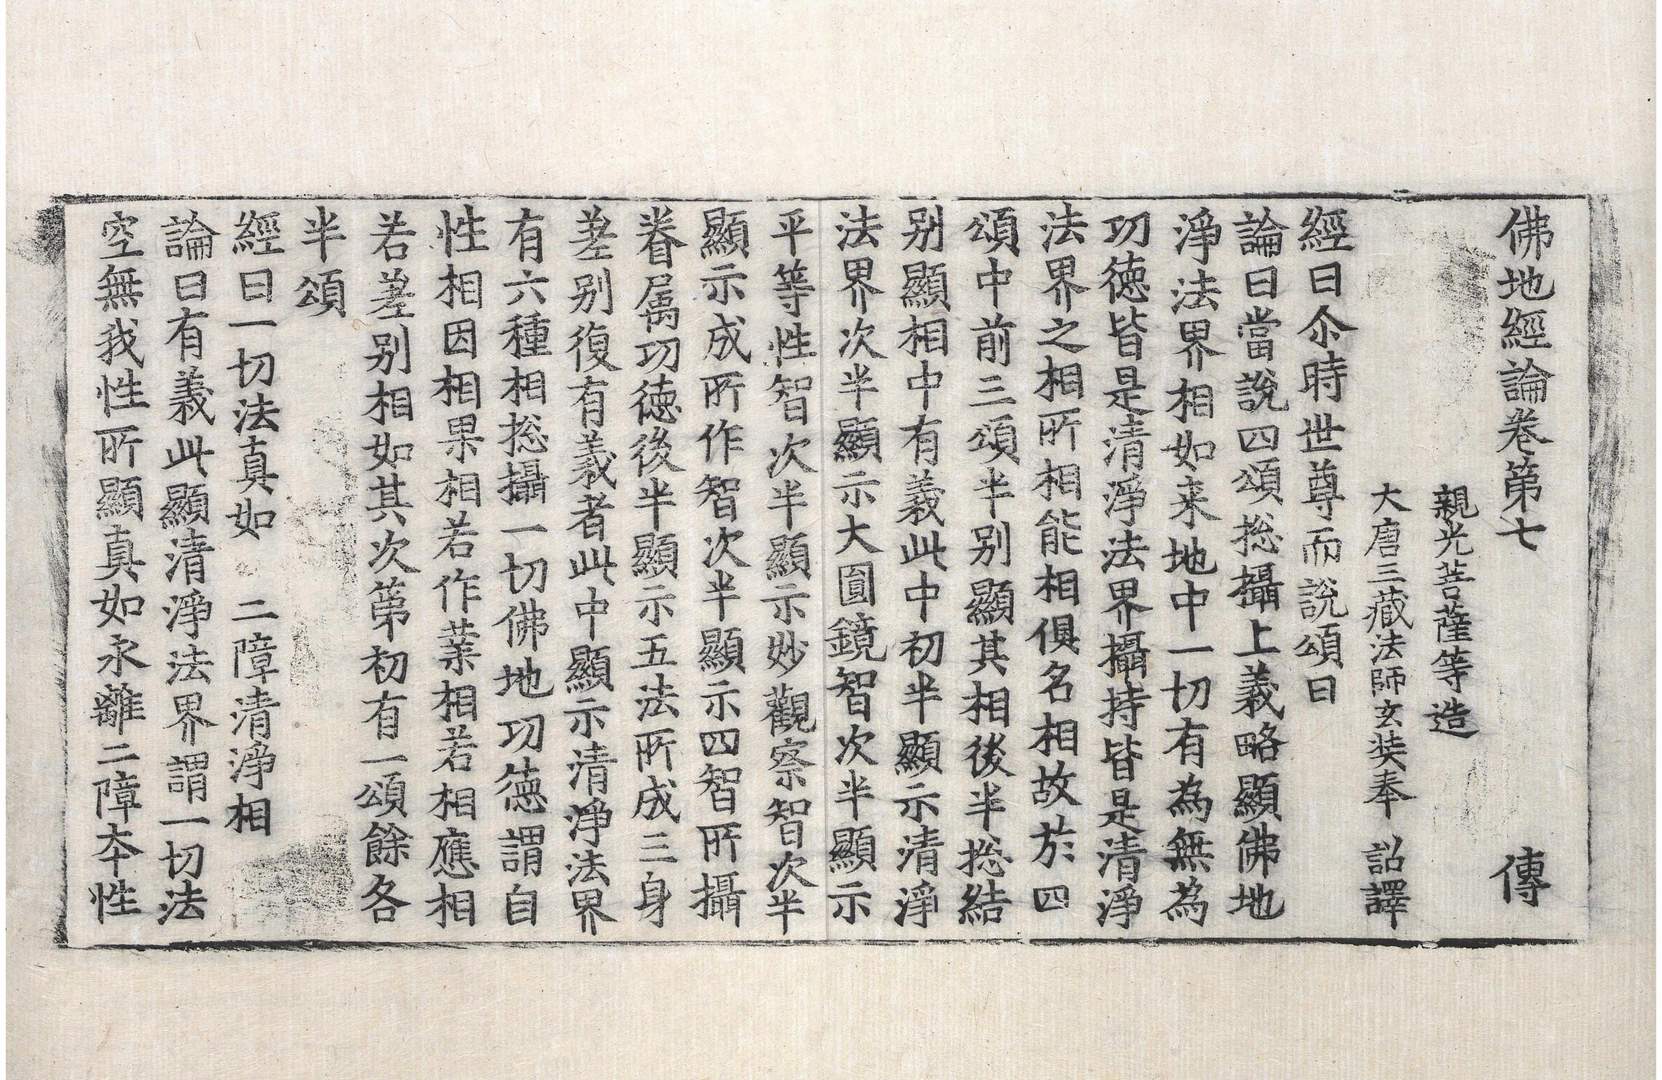 佛地經論卷第七 傳
親光菩薩等造
大唐三藏法師玄奘奉 詔譯
經曰尒時世尊而說頌曰
論曰當說四頌捴攝上義略顯佛地
淨法界相如来地中一切有為無為
功德皆是清淨法界攝持皆是清淨
法界之相所相能相俱名相故於四
頌中前三頌半别顯其相後半捴結
别顯相中有義此中初半顯示清淨
法界次半顯示大圓鏡智次半顯示
平等性智次半顯示妙觀察智次半
顯示成所作智次半顯示四智所攝
眷属功德後半顯示五法所成三身
差别復有義者此中顯示清淨法界
有六種相捴攝一切佛地功德謂自
性相因相果相若作業相若相應相
若差别相如其次第初有一頌餘各
半頌
經曰一切法真如 二障清淨相
論曰有義此顯清淨法界謂一切法
空無我性所顯真如永離二障夲性